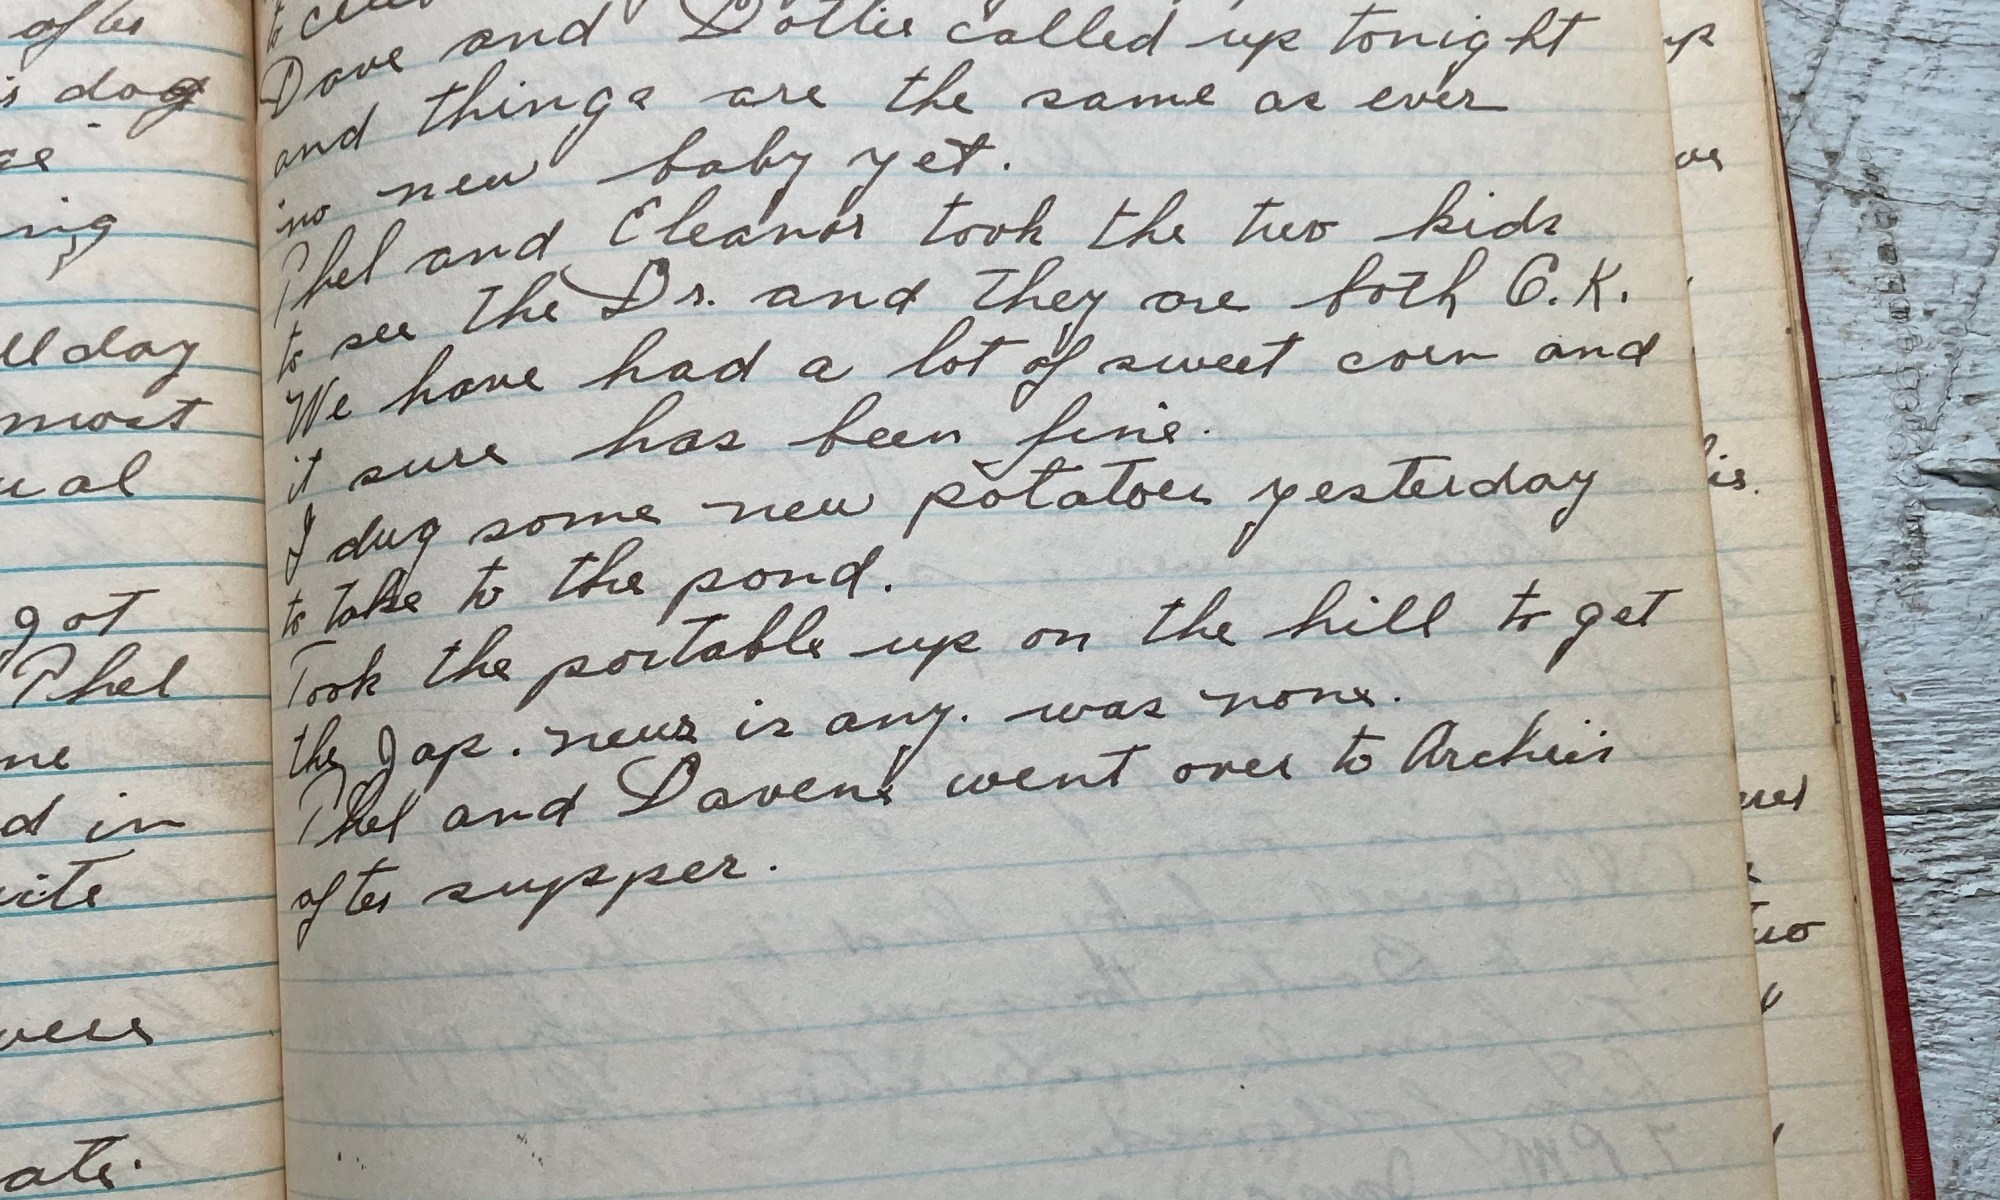 ofter
s dog
ing
ll day
most
ual
got
Phel
ne
d in
were
ate.
to
Dave and Dottie called up tonight
and things are the same as ever
no new baby yet.
Phel and Eleanor took the two kids
to see the Dr. and they are both O.K.
We have had a lot of sweet corn and
it sure has been fine.
I dug some new potatoes yesterday
to take to the pond.
Took the portable up on the hill to get
the Jap. news is any. was none.
Phel and Davene went over to Archeis
after supper.
up
is.
two